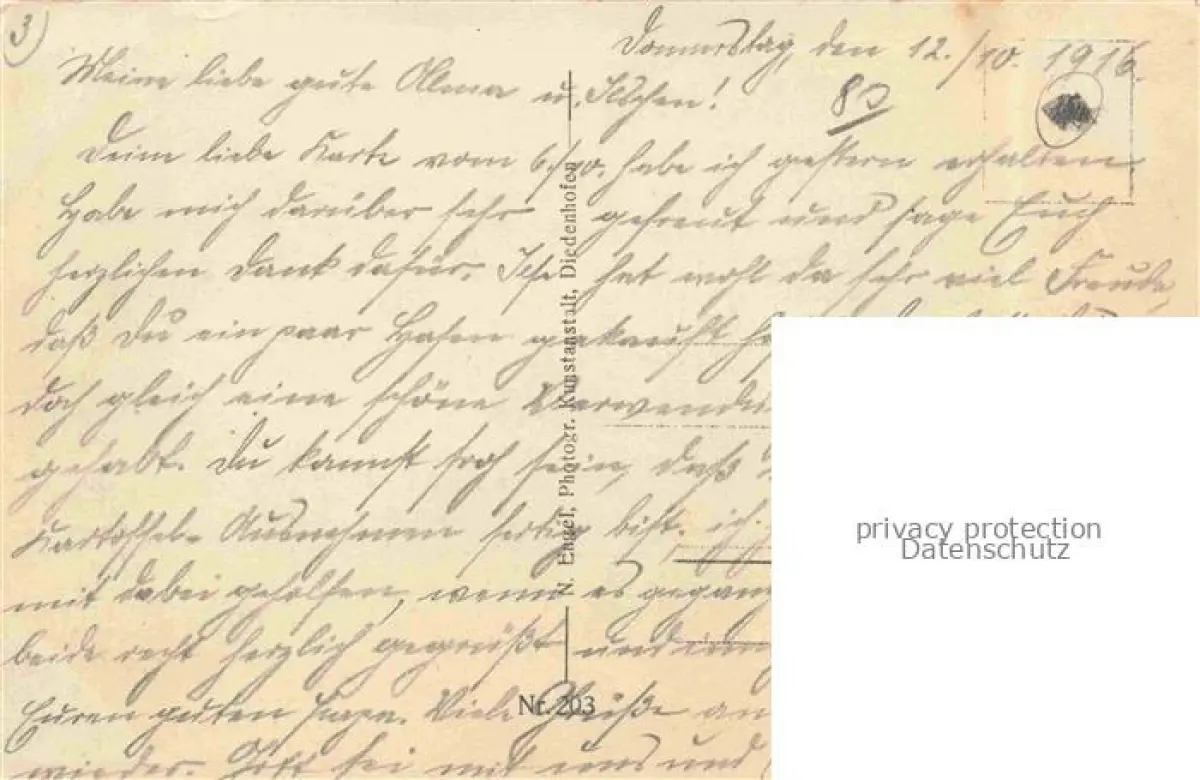 3)
Donnerstag, den 12./10. 1916.
Meine liebe gute Alma u. Ilschen!
80
Deine liebe Karte vom 6./10. habe ich gestern erhalten
Habe mich darüber sehr gefreut und sage Euch
herzlichen Dank dafür. Ilse hat wohl da sehr viel Freude,
daß Du ein paar Hasen gekauft
doch gleich eine schöne
gehabt. Du kannst froh sein, daß
Kartoffel-Ausnehmen fertig bist. ich
mit dabei geholfen, wenn es
beide recht herzlich gegrüßt und
Euren guten Papa. Viele Grüße an
wieder. Gott sei mit uns und
N. Engel, Photogr. Kunstanstalt, Diedenhofen
Nr. 203
privacy protection
Datenschutz